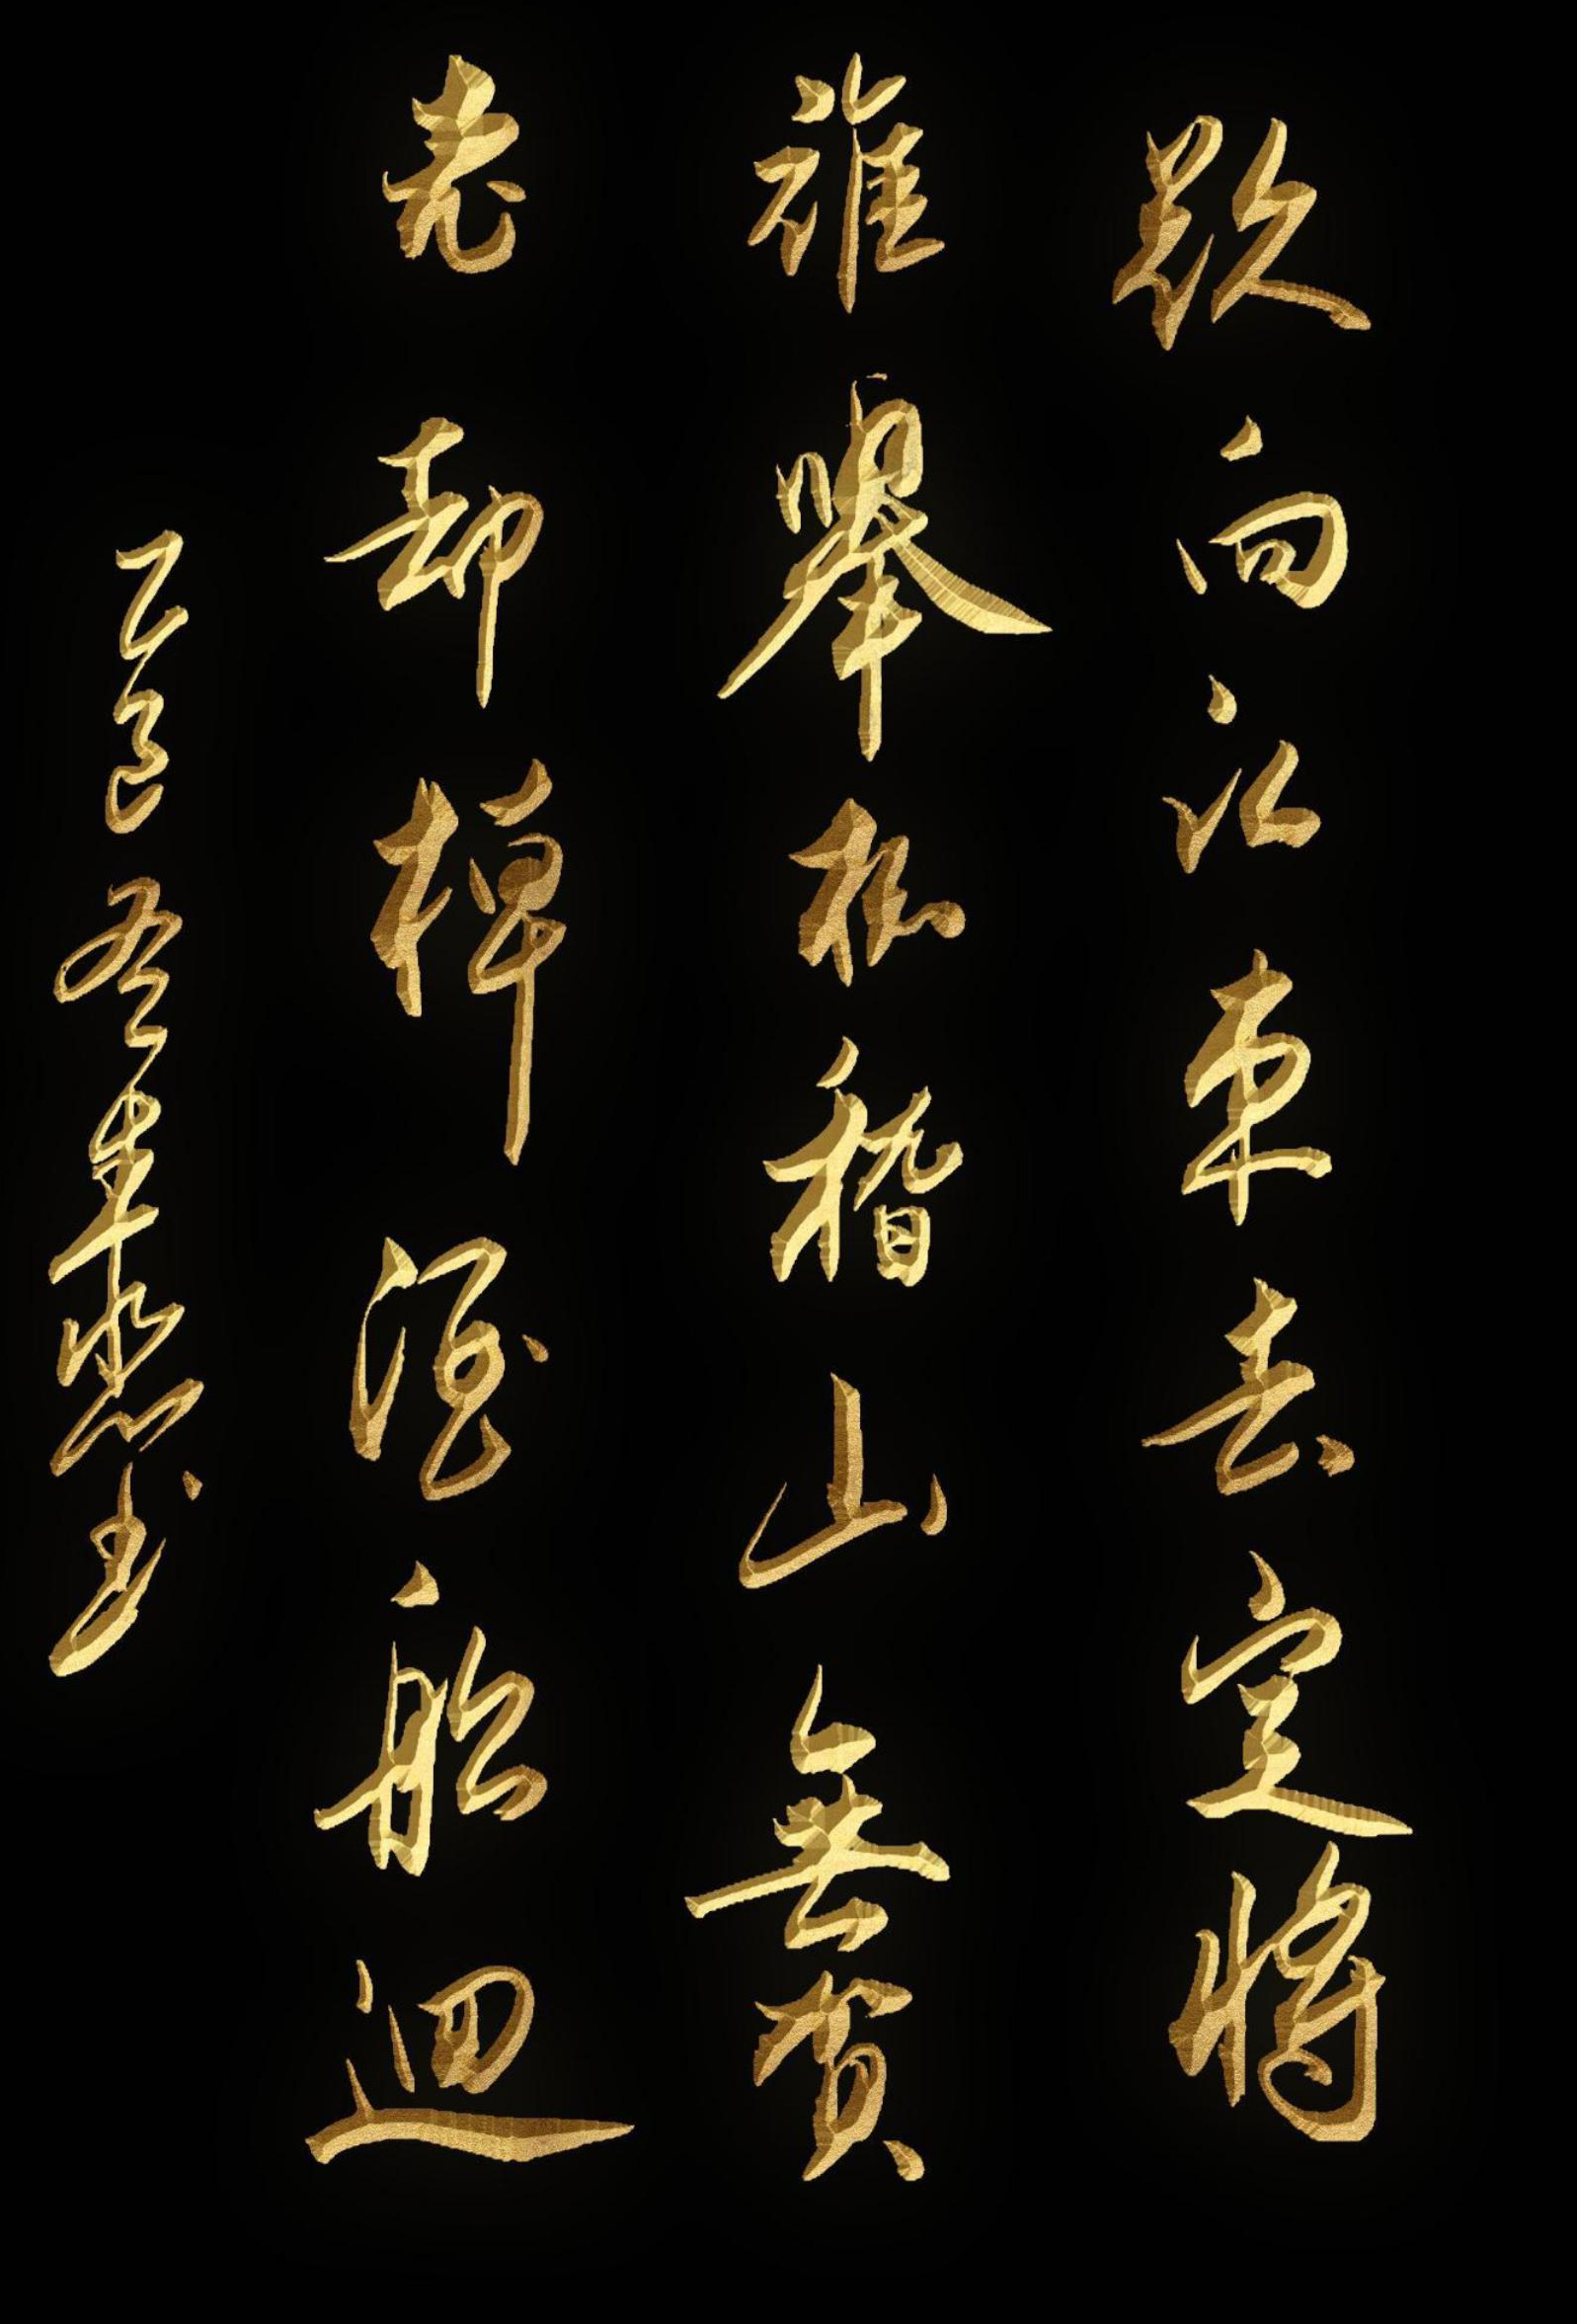 欲向江東去定將
誰舉杯稽山無賀
老却棹酒船迴
乙書